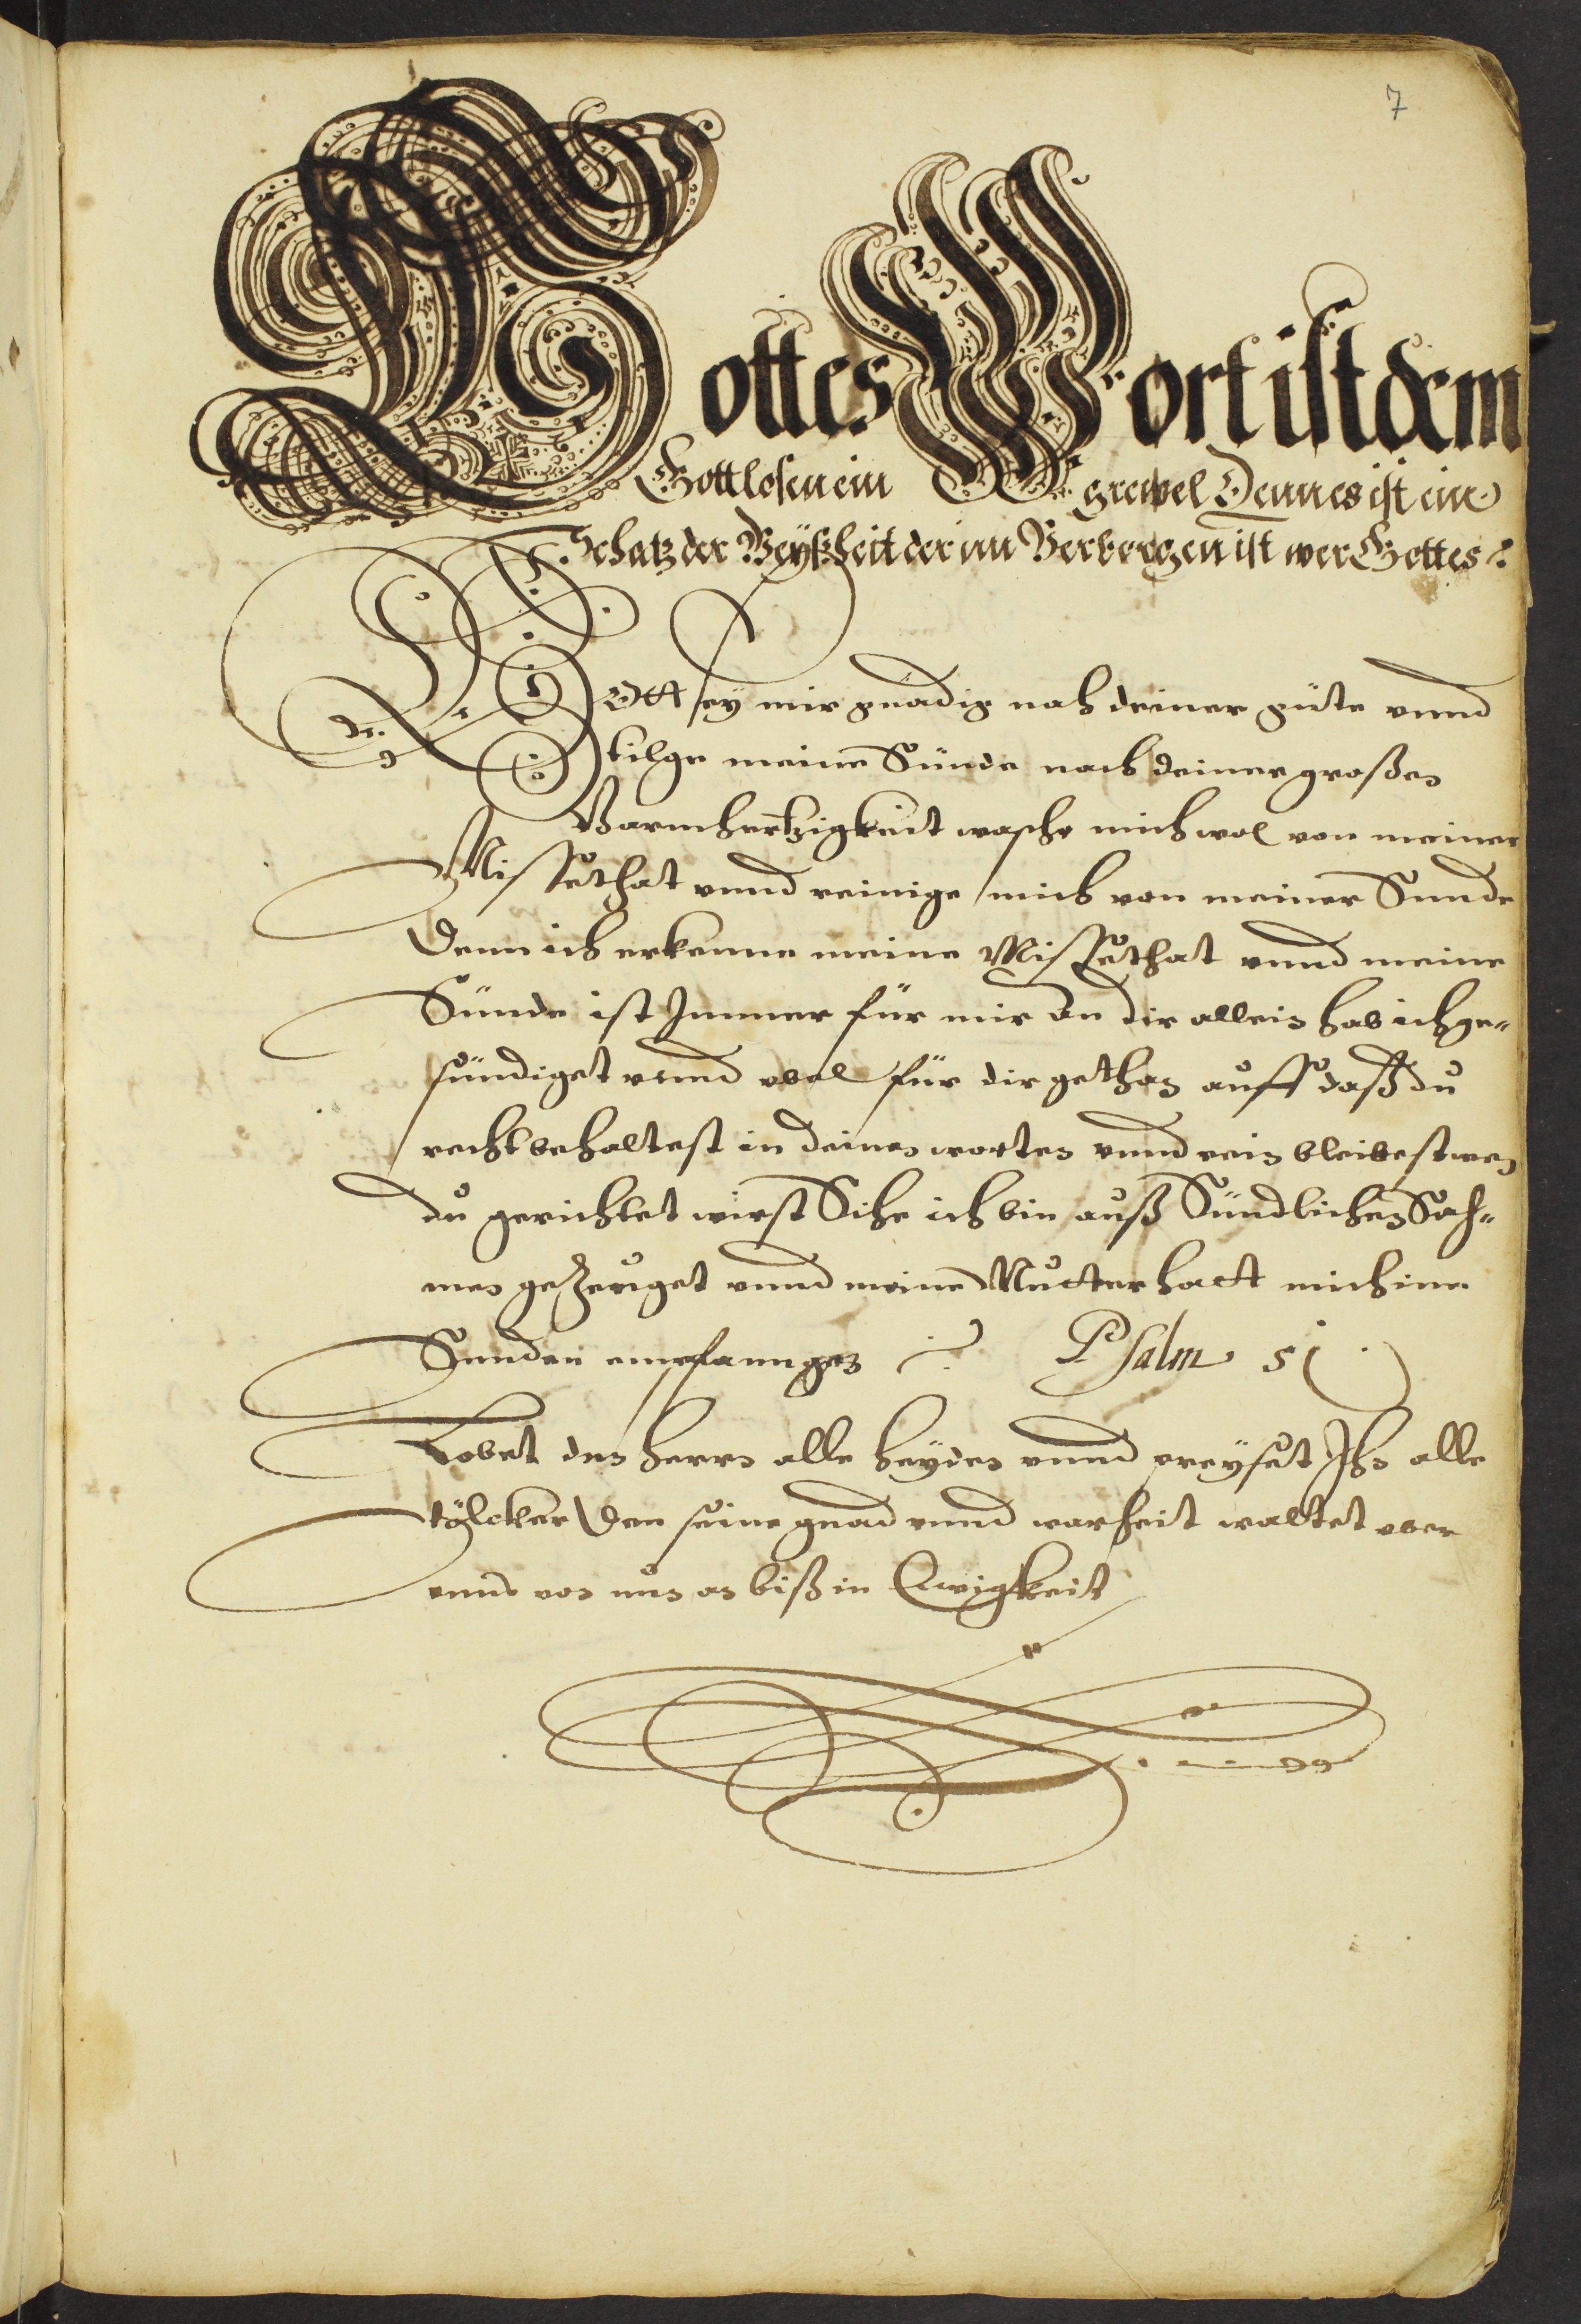 7
Gottes Wort ist dem
Gottlosen ein grewel Denn es ist ein
Schatz der Weyßheit der im Verborgen ist wer Gottes
GOtt sey mir gnädig nach deiner güte vnnd
tilge meine Sünde nach deiner großen
Barmhertzigkeit wasche mich wol von meiner
Missethat vnnd reinige mich von meiner Sunde
Denn ich erkenne meine Missethat vnnd meine
Sünde ist Immer für mir an dir allein hab ich ge-
sündiget vnnd vbel für dir gethan auff daß du
recht behaltest in deinen worten vnnd rein bleibest wen
du gerichtet wirst Sihe ich bin auß Sündlichen Sah-
men geZeuget vnnd meine Mutter hatt mich inn
Sunden empfanngen Psalm 51
Lobet den herrn alle heyden vnnd preyset Ihn alle
völcker Den seine gnad vnnd warheit waltet vber
vnns von nun an biß in Ewigkeit